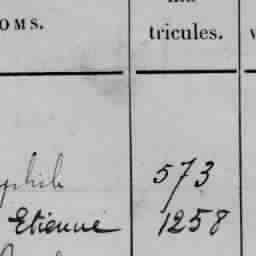 OMS.
tricules.
573
Etienne 1258